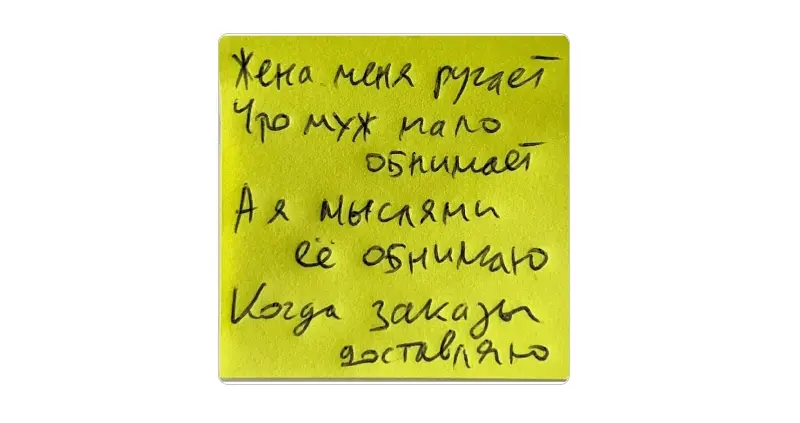 Жена меня ругает
Что муж мало
обнимает
А я мыслями
её обнимаю
Когда заказы
доставляю